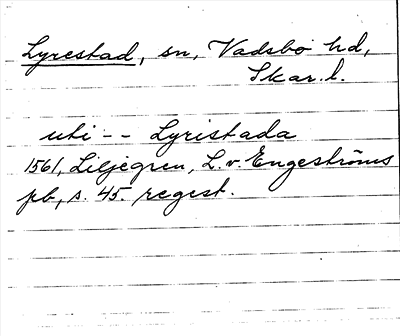 Lyrestad, sn, Vadsbo hd,
Skar. l.
uti -- Lyristada
1561, Liljegren, L. v. Engeströms
pb, s. 45. regest.